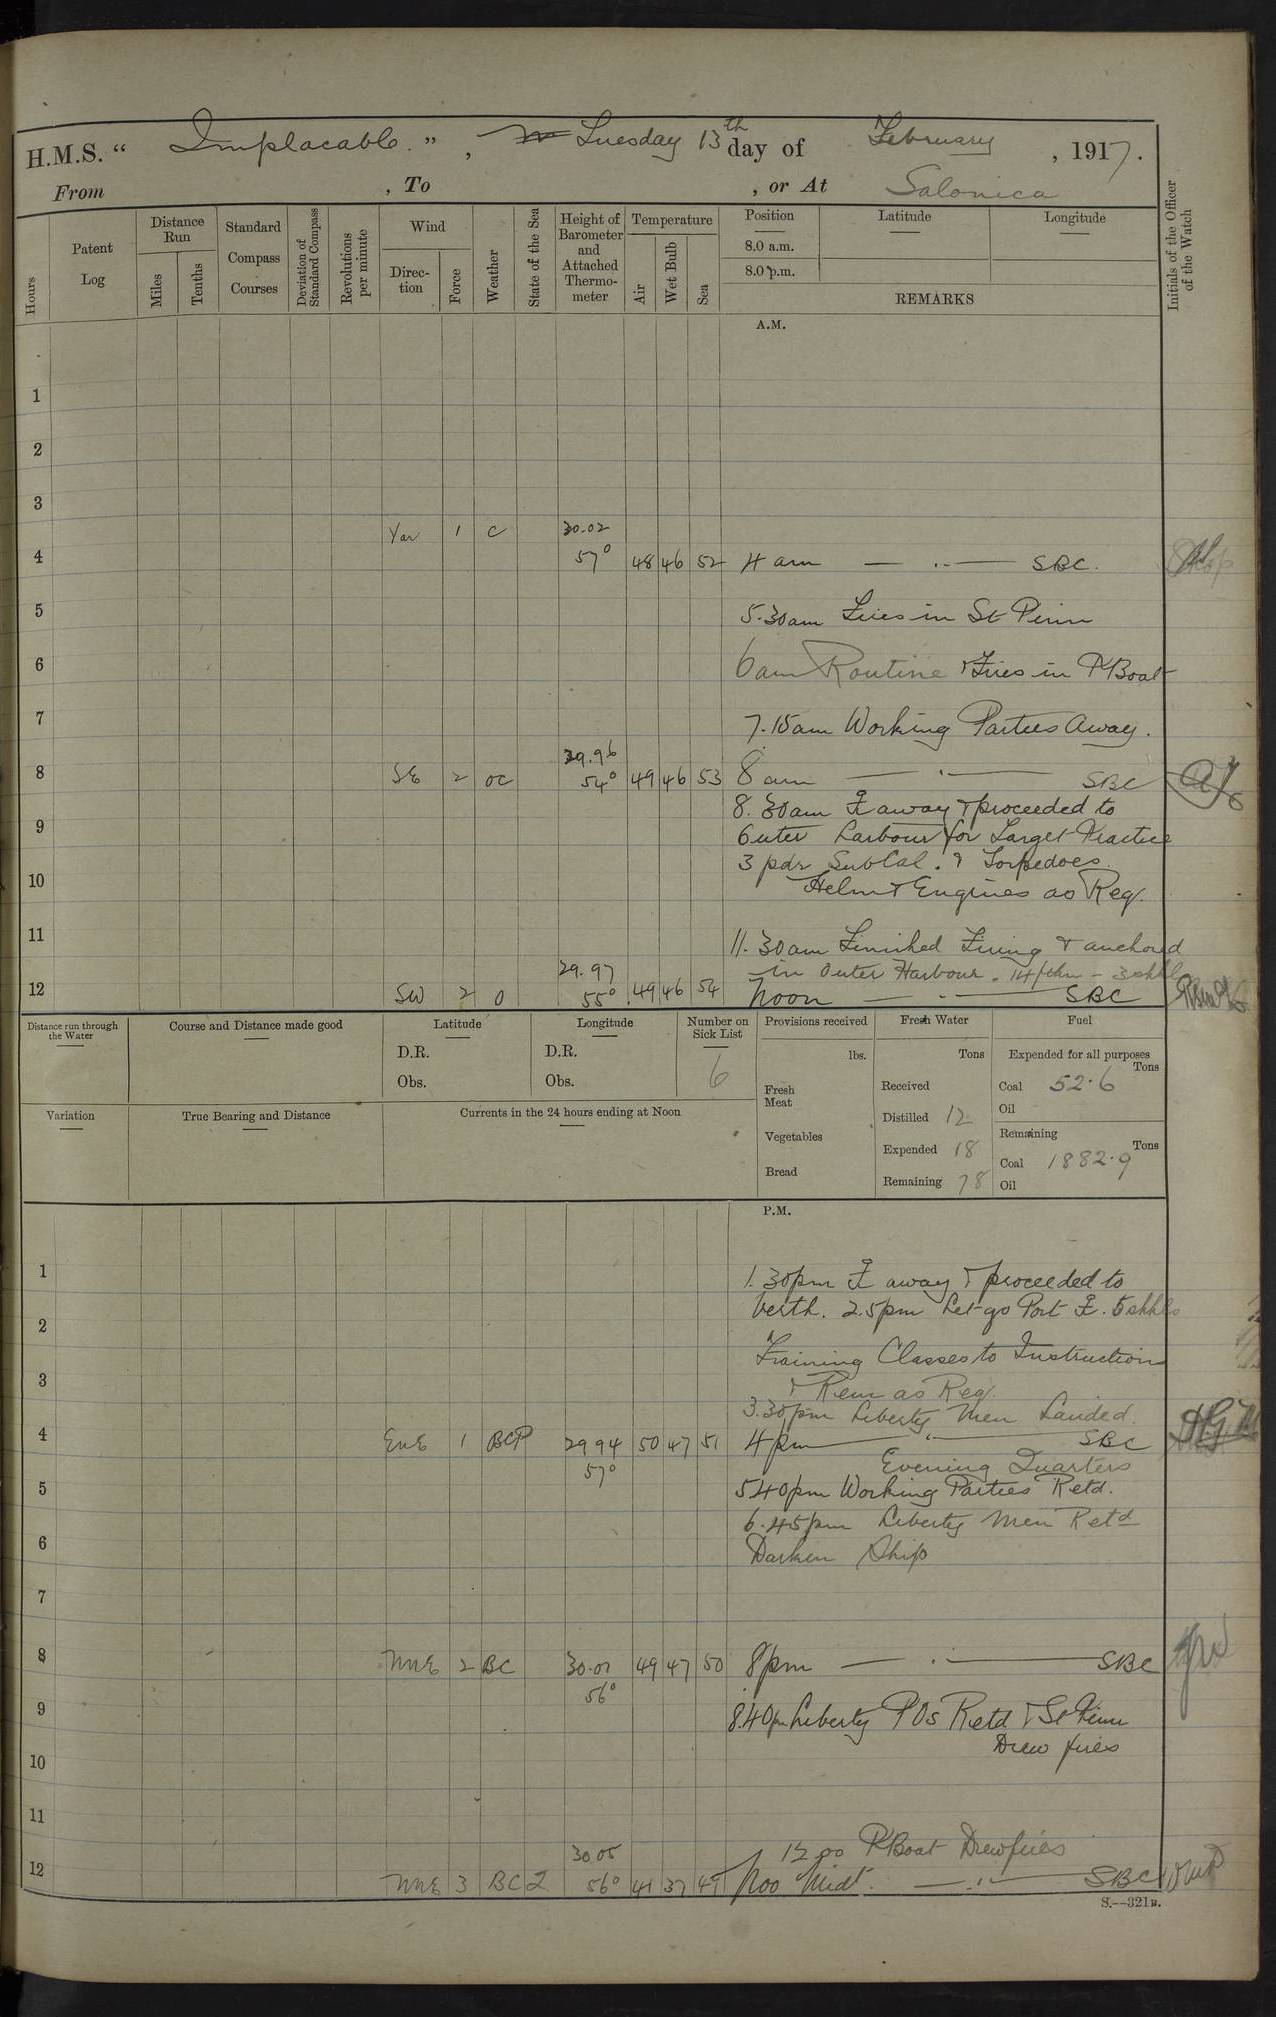 H.M.S. “ Implacable. ” , Tuesday 13th day of February , 1917.
From , To , or At Salonica
Hours
Patent Log
Distance Run
Miles
Tenths
Standard Compass Courses
Deviation of Standard Compass
Revolutions per minute
Wind
Direction
Force
Weather
State of the Sea
Height of Barometer and Attached Thermometer
Temperature
Air
Wet Bulb
Sea
Position
8.0 a.m.
8.0 p.m.
Latitude
Longitude
REMARKS
Initials of the Officer of the Watch
A.M.
1
2
3
Var 1 C 30.02
4 57° 48 46 52 4 am — .. — SBC.
5 5.30am Fires in St Pinn
6 6am Routine & Fires in PBoat
7 7.15am Working Parties Away.
29.96
8 SE 2 OC 54° 49 46 53 8 am — . — SBC
8.30am away & proceeded to
9 Outer harbour for Target Practice
3 pdr SubCal. & Torpedoes.
10 Helm & Engines as Req.
11 11.30am Finished Firing & anchored
29.97 in Outer Harbour. 14 fthm - 3 shkl
12 SW 2 O 55° 49 46 54 Noon — . — SBC
Distance run through the Water
Course and Distance made good
Latitude
D.R.
Obs.
Longitude
D.R.
Obs.
Number on Sick List
6
Variation
True Bearing and Distance
Currents in the 24 hours ending at Noon
Provisions received
lbs.
Fresh Meat
Vegetables
Bread
Fresh Water
Tons
Received
Distilled 12
Expended 18
Remaining 78
Fuel
Expended for all purposes
Tons
Coal 52.6
Oil
Remaining
Tons
Coal 1882.9
Oil
P.M.
1 1.30pm away & proceeded to
2 berth. 2.5pm Let go Port . 5 shkls
Training Classes to Instruction
3 & Rem as Req.
3.30pm Liberty Men Landed.
4 ENE 1 BCP 29.94 50 47 51 4pm — SBC
57° Evening Quarters
5 5.40pm Working Parties Retd.
6.45pm Liberty Men Retd
6 Darken Ship
7
8 NNE 2 BC 30.01 49 47 50 8pm — . — SBC
56°
9 8.40pm Liberty POs Retd & St Pinn
Drew fires
10
11
30.05 12.00 PBoat Drew fires
12 NNE 3 BCZ 56° 41 37 49 Midt. — SBC
S.—321B.